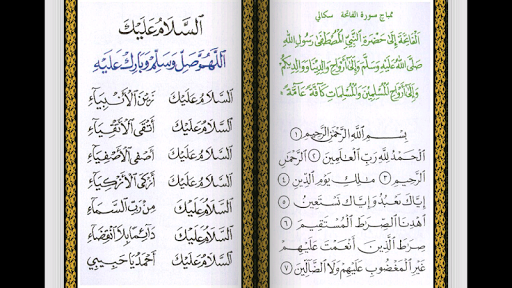 ممباچ سورة الفاتحة سكالي
اَلْفَاتِحَةَ إِلَى حَضْرَةِ النَّبِيِّ الْمُصْطَفَى رَسُوْلِ اللهِ
صَلَّى اللهُ عَلَيْهِ وَسَلَّمَ وَإِلَى أَرْوَاحِ
وَإِلَى أَرْوَاحِ الْمُسْلِمِيْنَ وَالْمُسْلِمَاتِ كَآفَّةً عَآمَّةً
بِسْمِ اللَّهِ الرَّحْمَنِ الرَّحِيمِ ١
الْحَمْدُ لِلَّهِ رَبِّ الْعَالَمِينَ ٢ الرَّحْمَنِ
الرَّحِيمِ ٣ مَالِكِ يَوْمِ الدِّينِ ٤
إِيَّاكَ نَعْبُدُ وَإِيَّاكَ نَسْتَعِينُ ٥
اهْدِنَا الصِّرَاطَ الْمُسْتَقِيمَ ٦
صِرَاطَ الَّذِينَ أَنْعَمْتَ عَلَيْهِمْ
غَيْرِ الْمَغْضُوبِ عَلَيْهِمْ وَلَا الضَّالِّينَ ٧
اَلسَّلَامُ عَلَيْكَ
اَللَّهُمَّ صَلِّ وَسَلِّمْ وَبَارِكْ عَلَيْهِ
اَلسَّلَامُ عَلَيْكَ زَيْنَ الْأَنْبِيَآءِ
اَلسَّلَامُ عَلَيْكَ أَتْقَى الْأَتْقِيَآءِ
اَلسَّلَامُ عَلَيْكَ أَصْفَى الْأَصْفِيَآءِ
اَلسَّلَامُ عَلَيْكَ أَزْكَى الْأَزْكِيَآءِ
اَلسَّلَامُ عَلَيْكَ مِنْ رَبِّ السَّمَآءِ
اَلسَّلَامُ عَلَيْكَ دَآئِمًا بِلَا انْقِضَآءِ
اَلسَّلَامُ عَلَيْكَ أَحْمَدُ يَا حَبِيْبِي